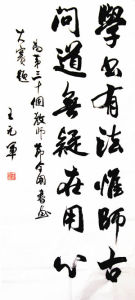 學書有法惟師古
問道無疑在用心
為第三十個教師節全國書畫
大賽題
王元軍